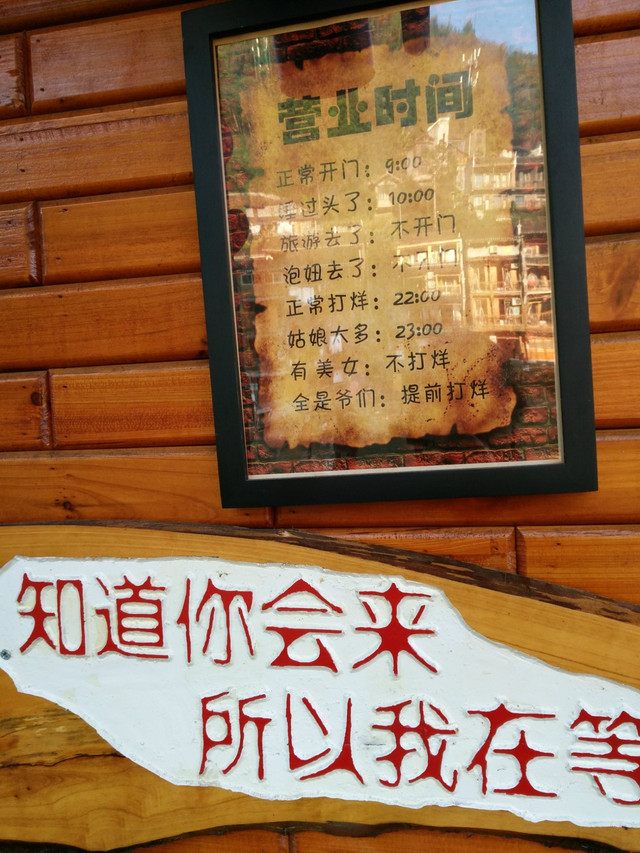 营业时间
正常开门：9:00
睡过头了：10:00
旅游去了：不开门
泡妞去了：不开门
正常打烊：22:00
姑娘太多：23:00
有美女：不打烊
全是爷们：提前打烊
知道你会来
所以我在等